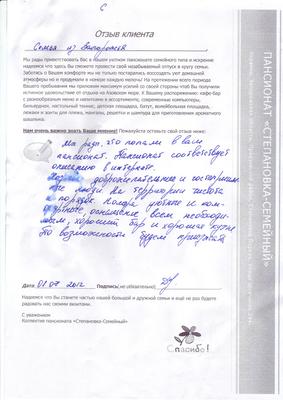 Отзыв клиента
Семья из Белоруссии
Мы рады приветствовать Вас в нашем уютном пансионате семейного типа и искренне
надеемся что здесь Вы сможете провести свой незабываемый отпуск в кругу семьи.
Заботясь о Вашем комфорте мы не только постарались воссоздать уют домашней
атмосферы но и продумали в номере каждую мелочь! На протяжении всего периода
Вашего пребывания мы приложим максимум усилий со своей стороны чтоб Вы получили
истинное удовольствие от отдыха на Азовском море. К Вашему распоряжению: кафе-бар
с разнообразным меню и напитками в ассортименте, современные компьютеры,
бильярдная, настольный теннис, детская площадка, батут, волейбольная площадка,
лежаки и зонты для пляжа, мангалы, решетки и шампура для приготовления ароматного
шашлыка.
Нам очень важно знать Ваше мнение! Пожалуйста оставьте свой отзыв ниже:
Мы рады, что попали в ваш
пансионат. Пансионат соответствует
описанию в интернете.
доброжелательные и гостеприим-
ные люди. На территории чистота
и порядок. Номера уютные и ком-
фортные, оснащенные всем необходи-
мым, хороший бар и хорошая кухня.
По возможности будем приезжать
Дата 01.07 2012 Подпись(не обязательно)
Надеемся что Вы станете частью нашей большой и дружной семьи и ещё не раз будете
радовать нас своими визитами.
С уважением
Коллектив пансионата «Степановка-Семейный»
Спасибо!
ПАНСИОНАТ «СТЕПАНОВКА-СЕМЕЙНЫЙ»